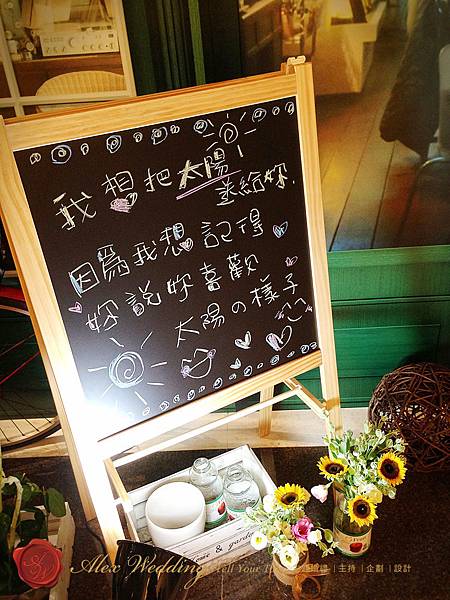 我想把太陽
送給妳.
因為我想記得
妳說妳喜觀
太陽の樣子
Home & garden
Alex Wedding Tell Your | 主持 | 企劃 | 設計